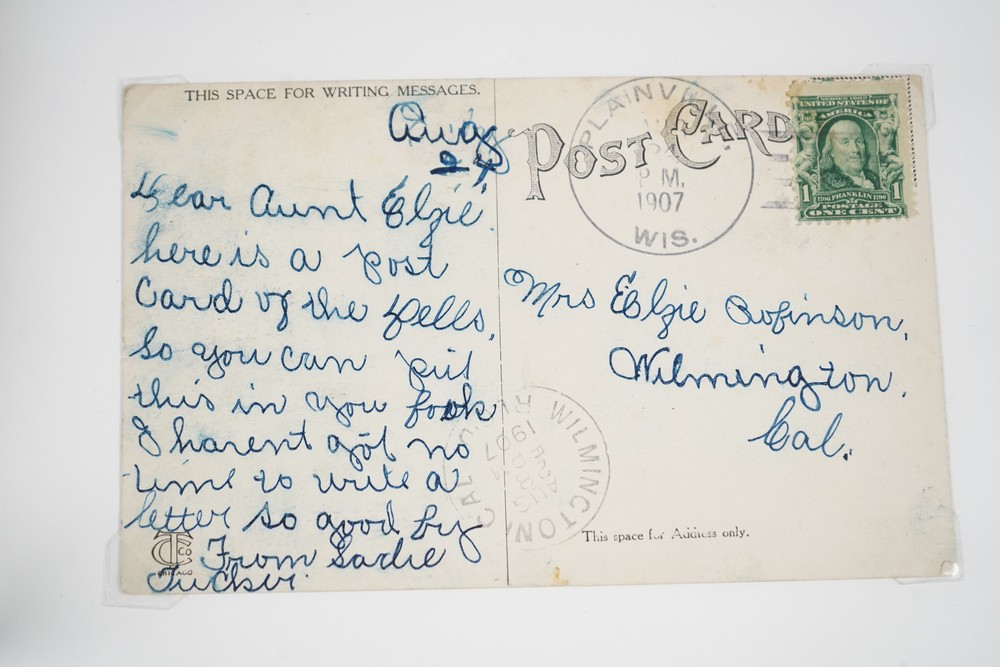 THIS SPACE FOR WRITING MESSAGES.
Aug
24,
Dear Aunt Elzie
here is a post
Card of the Dells,
So you can put
this in you book
I havent got no
time to write a
letter so good by
From Sadie
Tucker.
TC CO
CHICAGO
POST CARD
PLAINV
P.M.
1907
WIS.
SERIES 1902
UNITED STATES OF
AMERICA
1 1706 FRANKLIN 1790 1
POSTAGE
ONE CENT
Mrs Elzie Robinson,
Wilmington,
Cal.
WILMINGTON
CAL
1907
This space for Address only.